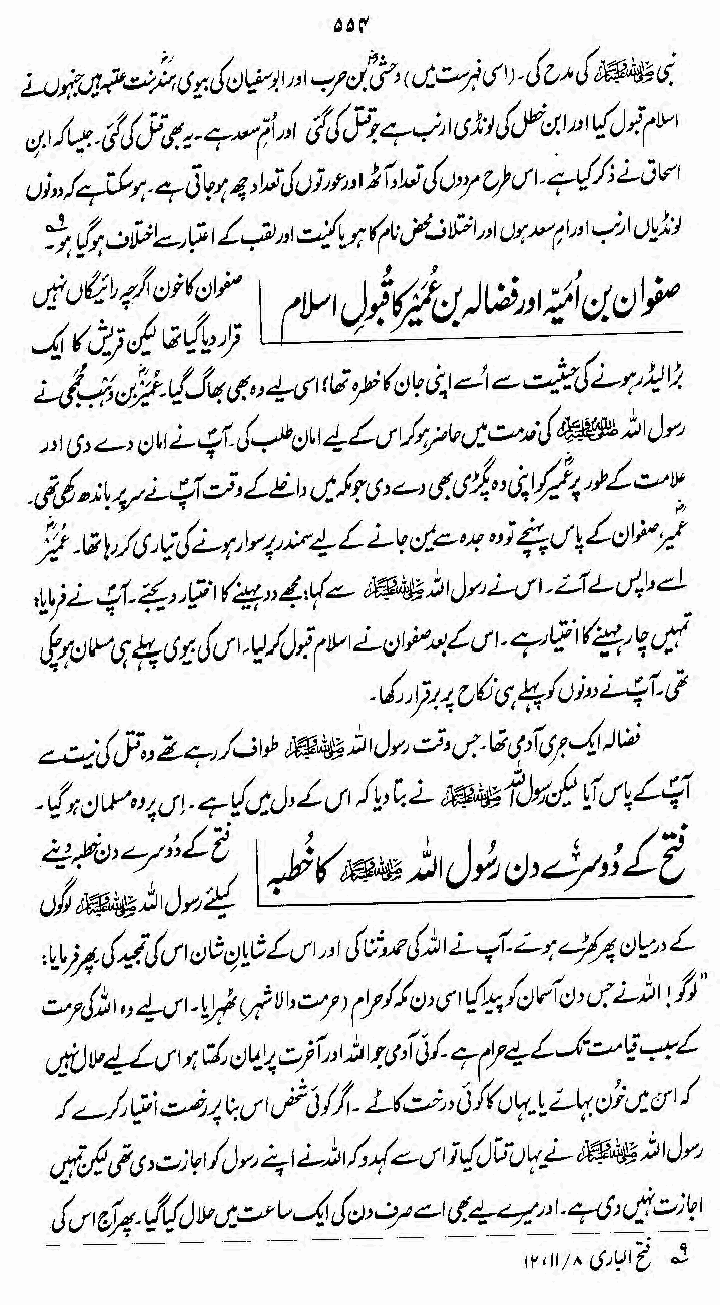 ۵۵۴
نبی ﷺ کی مدح کی۔ (اسی فہرست میں) وحشیؓ بن حرب اور ابوسفیان کی بیوی ہندؓ بنت عتبہ ہیں جنہوں نے
اسلام قبول کیا اور ابن خطل کی لونڈی ارنب ہے جو قتل کی گئی اور اُمِّ سعد ہے۔ یہ بھی قتل کی گئی۔ جیسا کہ ابنِ
اسحاق نے ذکر کیا ہے۔ اس طرح مردوں کی تعداد آٹھ اور عورتوں کی تعداد چھ ہو جاتی ہے۔ ہو سکتا ہے کہ دونوں
لونڈیاں ارنب اور ام سعد ہوں اور اختلاف محض نام کا ہو یا کنیت اور لقب کے اعتبار سے اختلاف ہو گیا ہو۔ ۹؎
صفوان بن اُمَیّہ اور فضالہ بن عُمَیْر کا قُبولِ اسلام
صفوان کا خون اگرچہ رائیگاں نہیں
قرار دیا گیا تھا لیکن قریش کا ایک
بڑا لیڈر ہونے کی حیثیت سے اُسے اپنی جان کا خطرہ تھا؛ اسی لیے وہ بھی بھاگ گیا۔ عُمَیرؓ بن وَہْب جُمَحِی نے
رسول اللہ ﷺ کی خدمت میں حاضر ہو کر اس کے لیے امان طلب کی۔ آپؐ نے امان دے دی اور
علامت کے طور پر عُمَیرؓ کو اپنی وہ پگڑی بھی دے دی جو مکہ میں داخلے کے وقت آپؐ نے سر پر باندھ رکھی تھی۔
عُمیرؓ، صفوان کے پاس پہنچے تو وہ جدہ سے یمن جانے کے لیے سمندر پر سوار ہونے کی تیاری کر رہا تھا۔ عُمَیرؓ
اسے واپس لے آئے۔ اس نے رسول اللہ ﷺ سے کہا؛ مجھے دو مہینے کا اختیار دیجئے۔ آپؐ نے فرمایا؛
تمہیں چار مہینے کا اختیار ہے۔ اس کے بعد صفوان نے اسلام قبول کر لیا۔ اس کی بیوی پہلے ہی مسلمان ہو چکی
تھی۔ آپؐ نے دونوں کو پہلے ہی نکاح پر برقرار رکھا۔
فضالہ ایک جری آدمی تھا۔ جس وقت رسول اللہ ﷺ طواف کر رہے تھے وہ قتل کی نیت سے
آپؐ کے پاس آیا لیکن رسول اللہ ﷺ نے بتا دیا کہ اس کے دل میں کیا ہے۔ اِس پر وہ مسلمان ہو گیا۔
فتح کے دُوسرے دن رسُول اللہ ﷺ کا خُطبہ
فتح کے دُوسرے دن خطبہ دینے
کیلئے رسول اللہ ﷺ لوگوں
کے درمیان پھر کھڑے ہوئے۔ آپ نے اللہ کی حمد و ثنا کی اور اس کے شایانِ شان اس کی تمجید کی پھر فرمایا؛
"لوگو! اللہ نے جس دن آسمان کو پیدا کیا اسی دن مکہ کو حرام (حرمت والا شہر) ٹھہرایا۔ اس لیے وہ اللہ کی حرمت
کے سبب قیامت تک کے لیے حرام ہے۔ کوئی آدمی جو اللہ اور آخرت پر ایمان رکھتا ہو اس کے لیے حلال نہیں
کہ اس میں خُون بہائے یا یہاں کا کوئی درخت کاٹے۔ اگر کوئی شخص اس بنا پر رخصت اختیار کرے کہ
رسول اللہ ﷺ نے یہاں قتال کیا تو اس سے کہدو کہ اللہ نے اپنے رسول کو اجازت دی تھی لیکن تمہیں
اجازت نہیں دی ہے۔ اور میرے لیے بھی اسے صرف دن کی ایک ساعت میں حلال کیا گیا۔ پھر آج اس کی
۹؎ فتح الباری ۸/ ۱۱، ۱۲